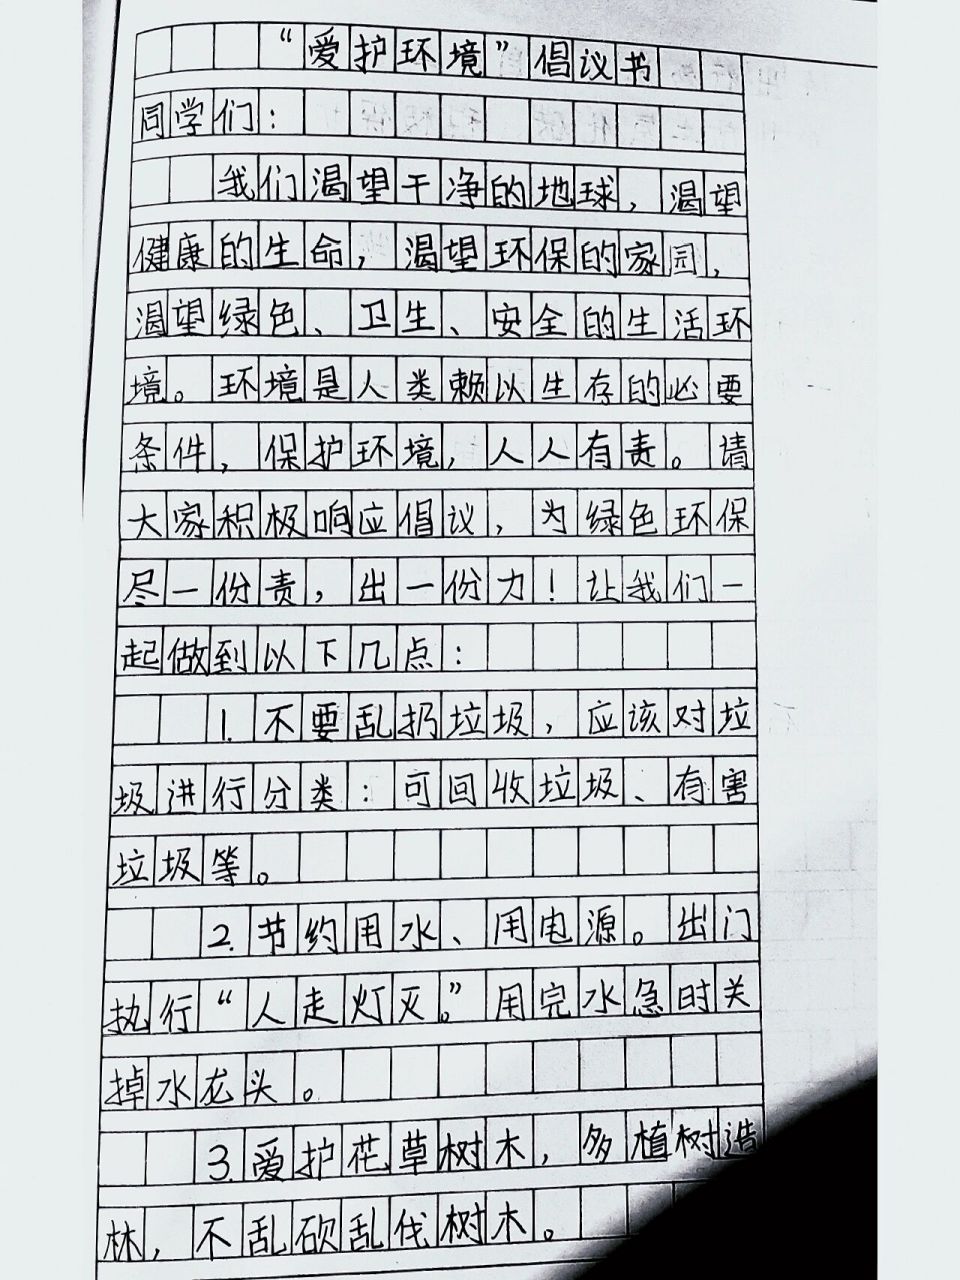 “爱护环境”倡议书
同学们：
我们渴望干净的地球，渴望
健康的生命，渴望环保的家园，
渴望绿色、卫生、安全的生活环
境。环境是人类赖以生存的必要
条件，保护环境，人人有责。请
大家积极响应倡议，为绿色环保
尽一份责，出一份力！让我们一
起做到以下几点：
1.不要乱扔垃圾，应该对垃
圾进行分类：可回收垃圾、有害
垃圾等。
2.节约用水、用电源。出门
执行“人走灯灭。”用完水急时关
掉水龙头。
3.爱护花草树木，多植树造
林，不乱砍乱伐树木。